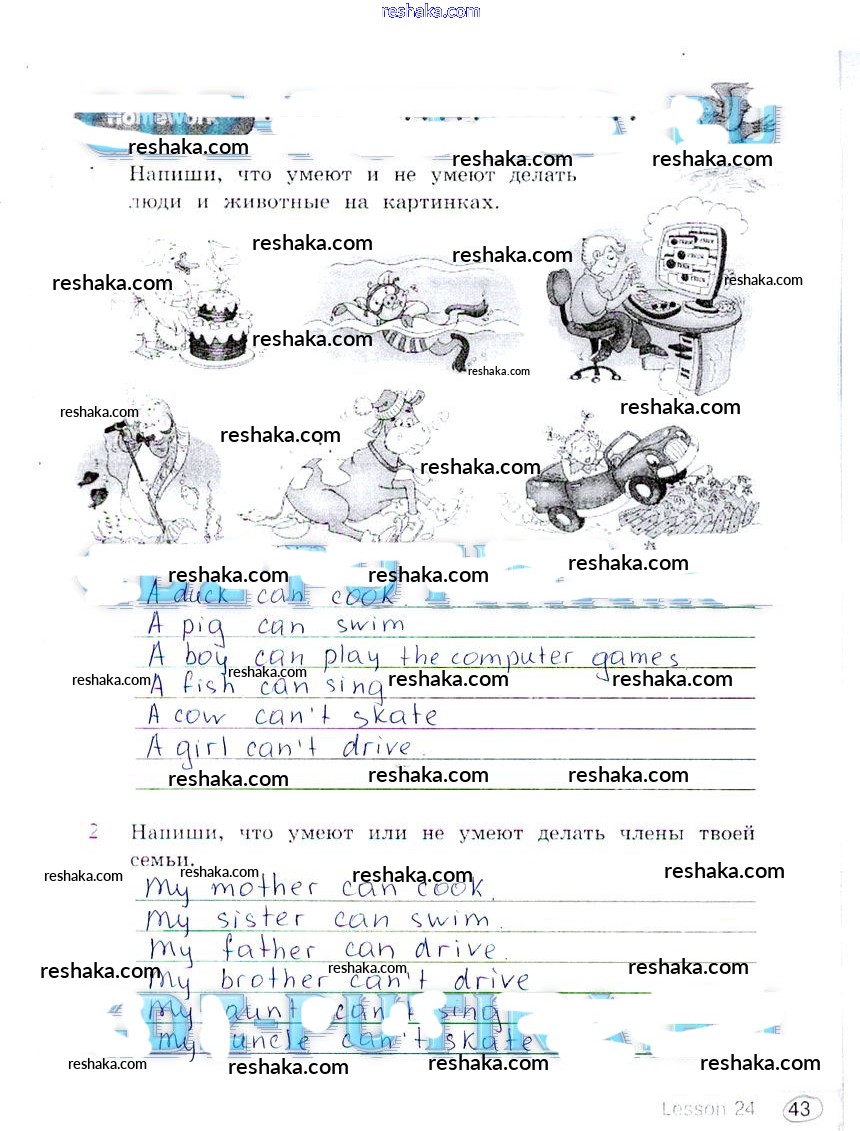 reshaka.com
Homework
reshaka.com
reshaka.com reshaka.com
Напиши, что умеют и не умеют делать
люди и животные на картинках.
reshaka.com
reshaka.com
reshaka.com reshaka.com
reshaka.com
reshaka.com
reshaka.com reshaka.com
reshaka.com
reshaka.com
reshaka.com
reshaka.com reshaka.com
A duck can cook.
A pig can swim
A boy can play the computer games.
reshaka.com reshaka.com reshaka.com reshaka.com
A fish can sing
A cow can't skate
A girl can't drive.
reshaka.com reshaka.com reshaka.com
2 Напиши, что умеют или не умеют делать члены твоей
семьи.
reshaka.com reshaka.com reshaka.com reshaka.com
My mother can cook.
My sister can swim.
My father can drive.
reshaka.com reshaka.com reshaka.com
My brother can't drive
My aunt can't sing
My uncle can't skate
reshaka.com reshaka.com reshaka.com reshaka.com
Lesson 24 43